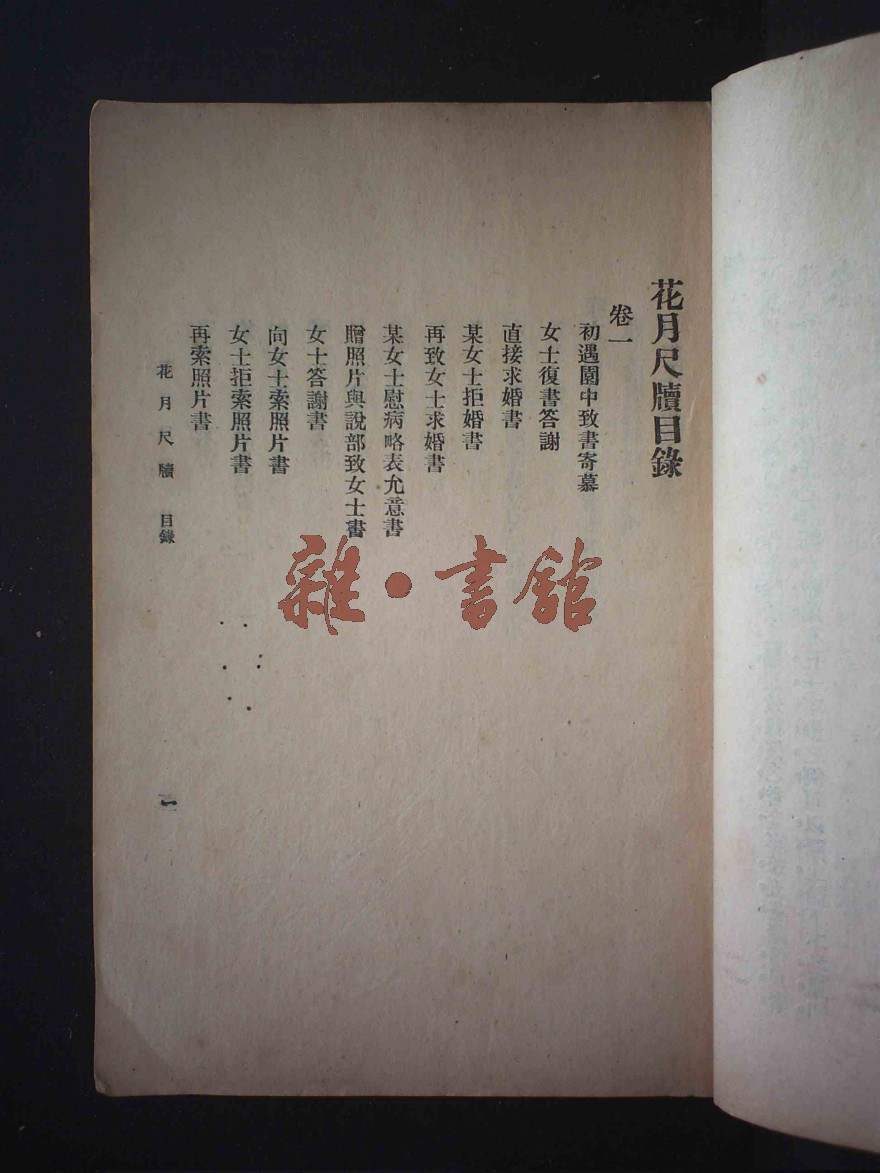 花月尺牘目錄
卷一
初遇園中致書寄慕
女士復書答謝
直接求婚書
某女士拒婚書
再致女士求婚書
某女士慰病略表允意書
贈照片與說部致女士書
女士答謝書
向女士索照片書
女士拒索照片書
再索照片書
花月尺牘 目錄
一
雜·書館